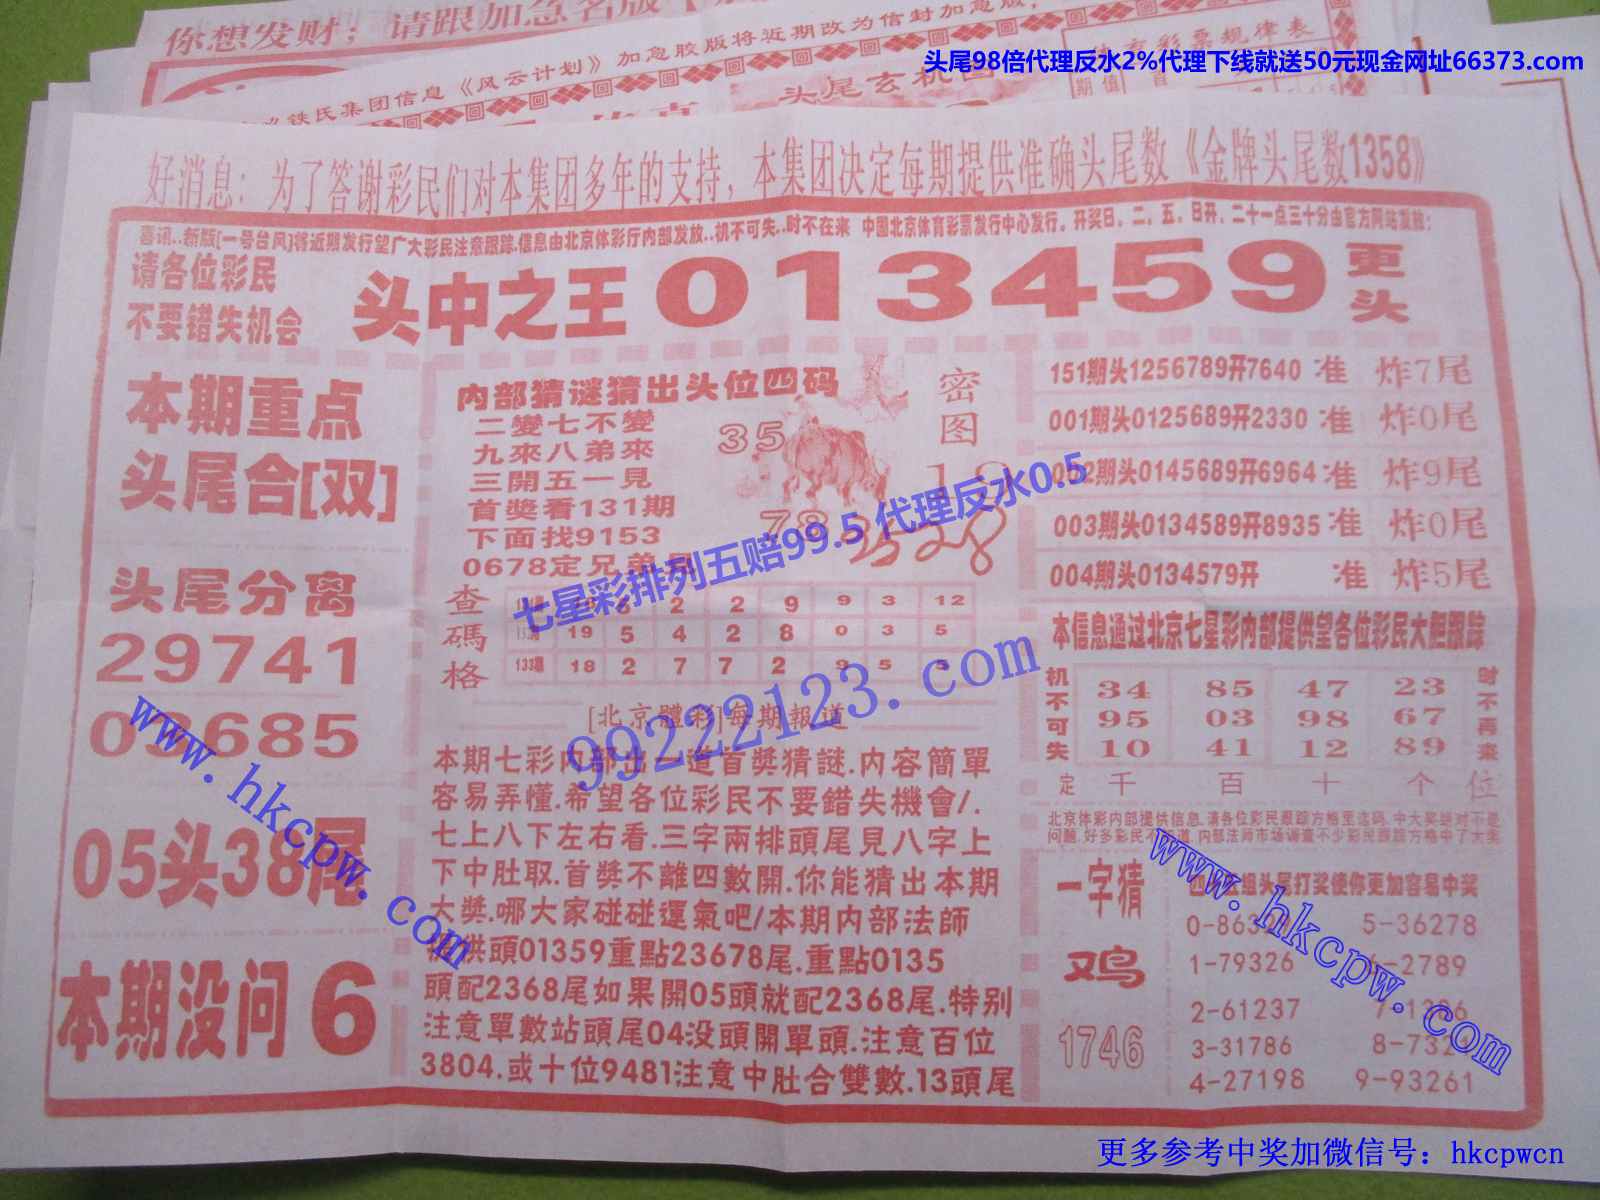 你想发财；请跟加急名版
铁氏集团信息《风云计划》加急胶版将近期改为信封加急版，
彩票规律表
头尾98倍代理反水2%代理下线就送50元现金网址66373.com
头尾玄机图
期 值 首
好消息：为了答谢彩民们对本集团多年的支持，本集团决定每期提供准确头尾数《金牌头尾数1358》
喜讯..新版[一号台风]将近期发行望广大彩民注意跟踪.信息由北京体彩厅内部发放..机不可失..时不在来 中国北京体育彩票发行中心发行。开奖日。二。五。日开。二十一点三十分由官方网站发放；
请各位彩民
不要错失机会
头中之王013459
更头
本期重点
头尾合[双]
头尾分离
29741
03685
05头38尾
本期没问6
内部猜谜猜出头位四码
二變七不變
九來八弟來
三開五一見
首獎看131期
下面找9153
0678定兄弟
密图
35
78
19
3528
七星彩排列五赔99.5 代理反水0.5
查碼格
6 2 2 9 9 3 12
19 5 4 2 8 0 3 5
133期 18 2 7 7 2 9 5
[北京體彩]每期報道
本期七彩内部出一道首獎猜謎.内容簡單
容易弄懂.希望各位彩民不要錯失機會/.
七上八下左右看.三字兩排頭尾見八字上
下中肚取.首獎不離四數開.你能猜出本期
大獎.哪大家碰碰運氣吧/本期内部法師
提供頭01359重點23678尾.重點0135
頭配2368尾如果開05頭就配2368尾.特别
注意單數站頭尾04没頭開單頭.注意百位
3804.或十位9481注意中肚合雙數.13頭尾
151期头1256789开7640 准 炸7尾
001期头0125689开2330 准 炸0尾
002期头0145689开6964 准 炸9尾
003期头0134589开8935 准 炸0尾
004期头0134579开 准 炸5尾
本信息通过北京七星彩内部提供望各位彩民大胆跟踪
机不可失
34 85 47 23
95 03 98 67
10 41 12 89
时不再来
定 千 百 十 个 位
北京体彩内部提供信息.请各位彩民跟踪方格里选码.中大奖绝对不是
问题.好多彩民不 道.内部法师市场调查不少彩民跟踪方格中了大奖
一字猜
鸡
1746
组头尾打奖使你更加容易中奖
5-36278
1-79326 6-2789
2-61237
3-31786
4-27198 9-93261
www.hkcpw.com
99222123.com
www.hkcpw.com
更多参考中奖加微信号：hkcpwcn